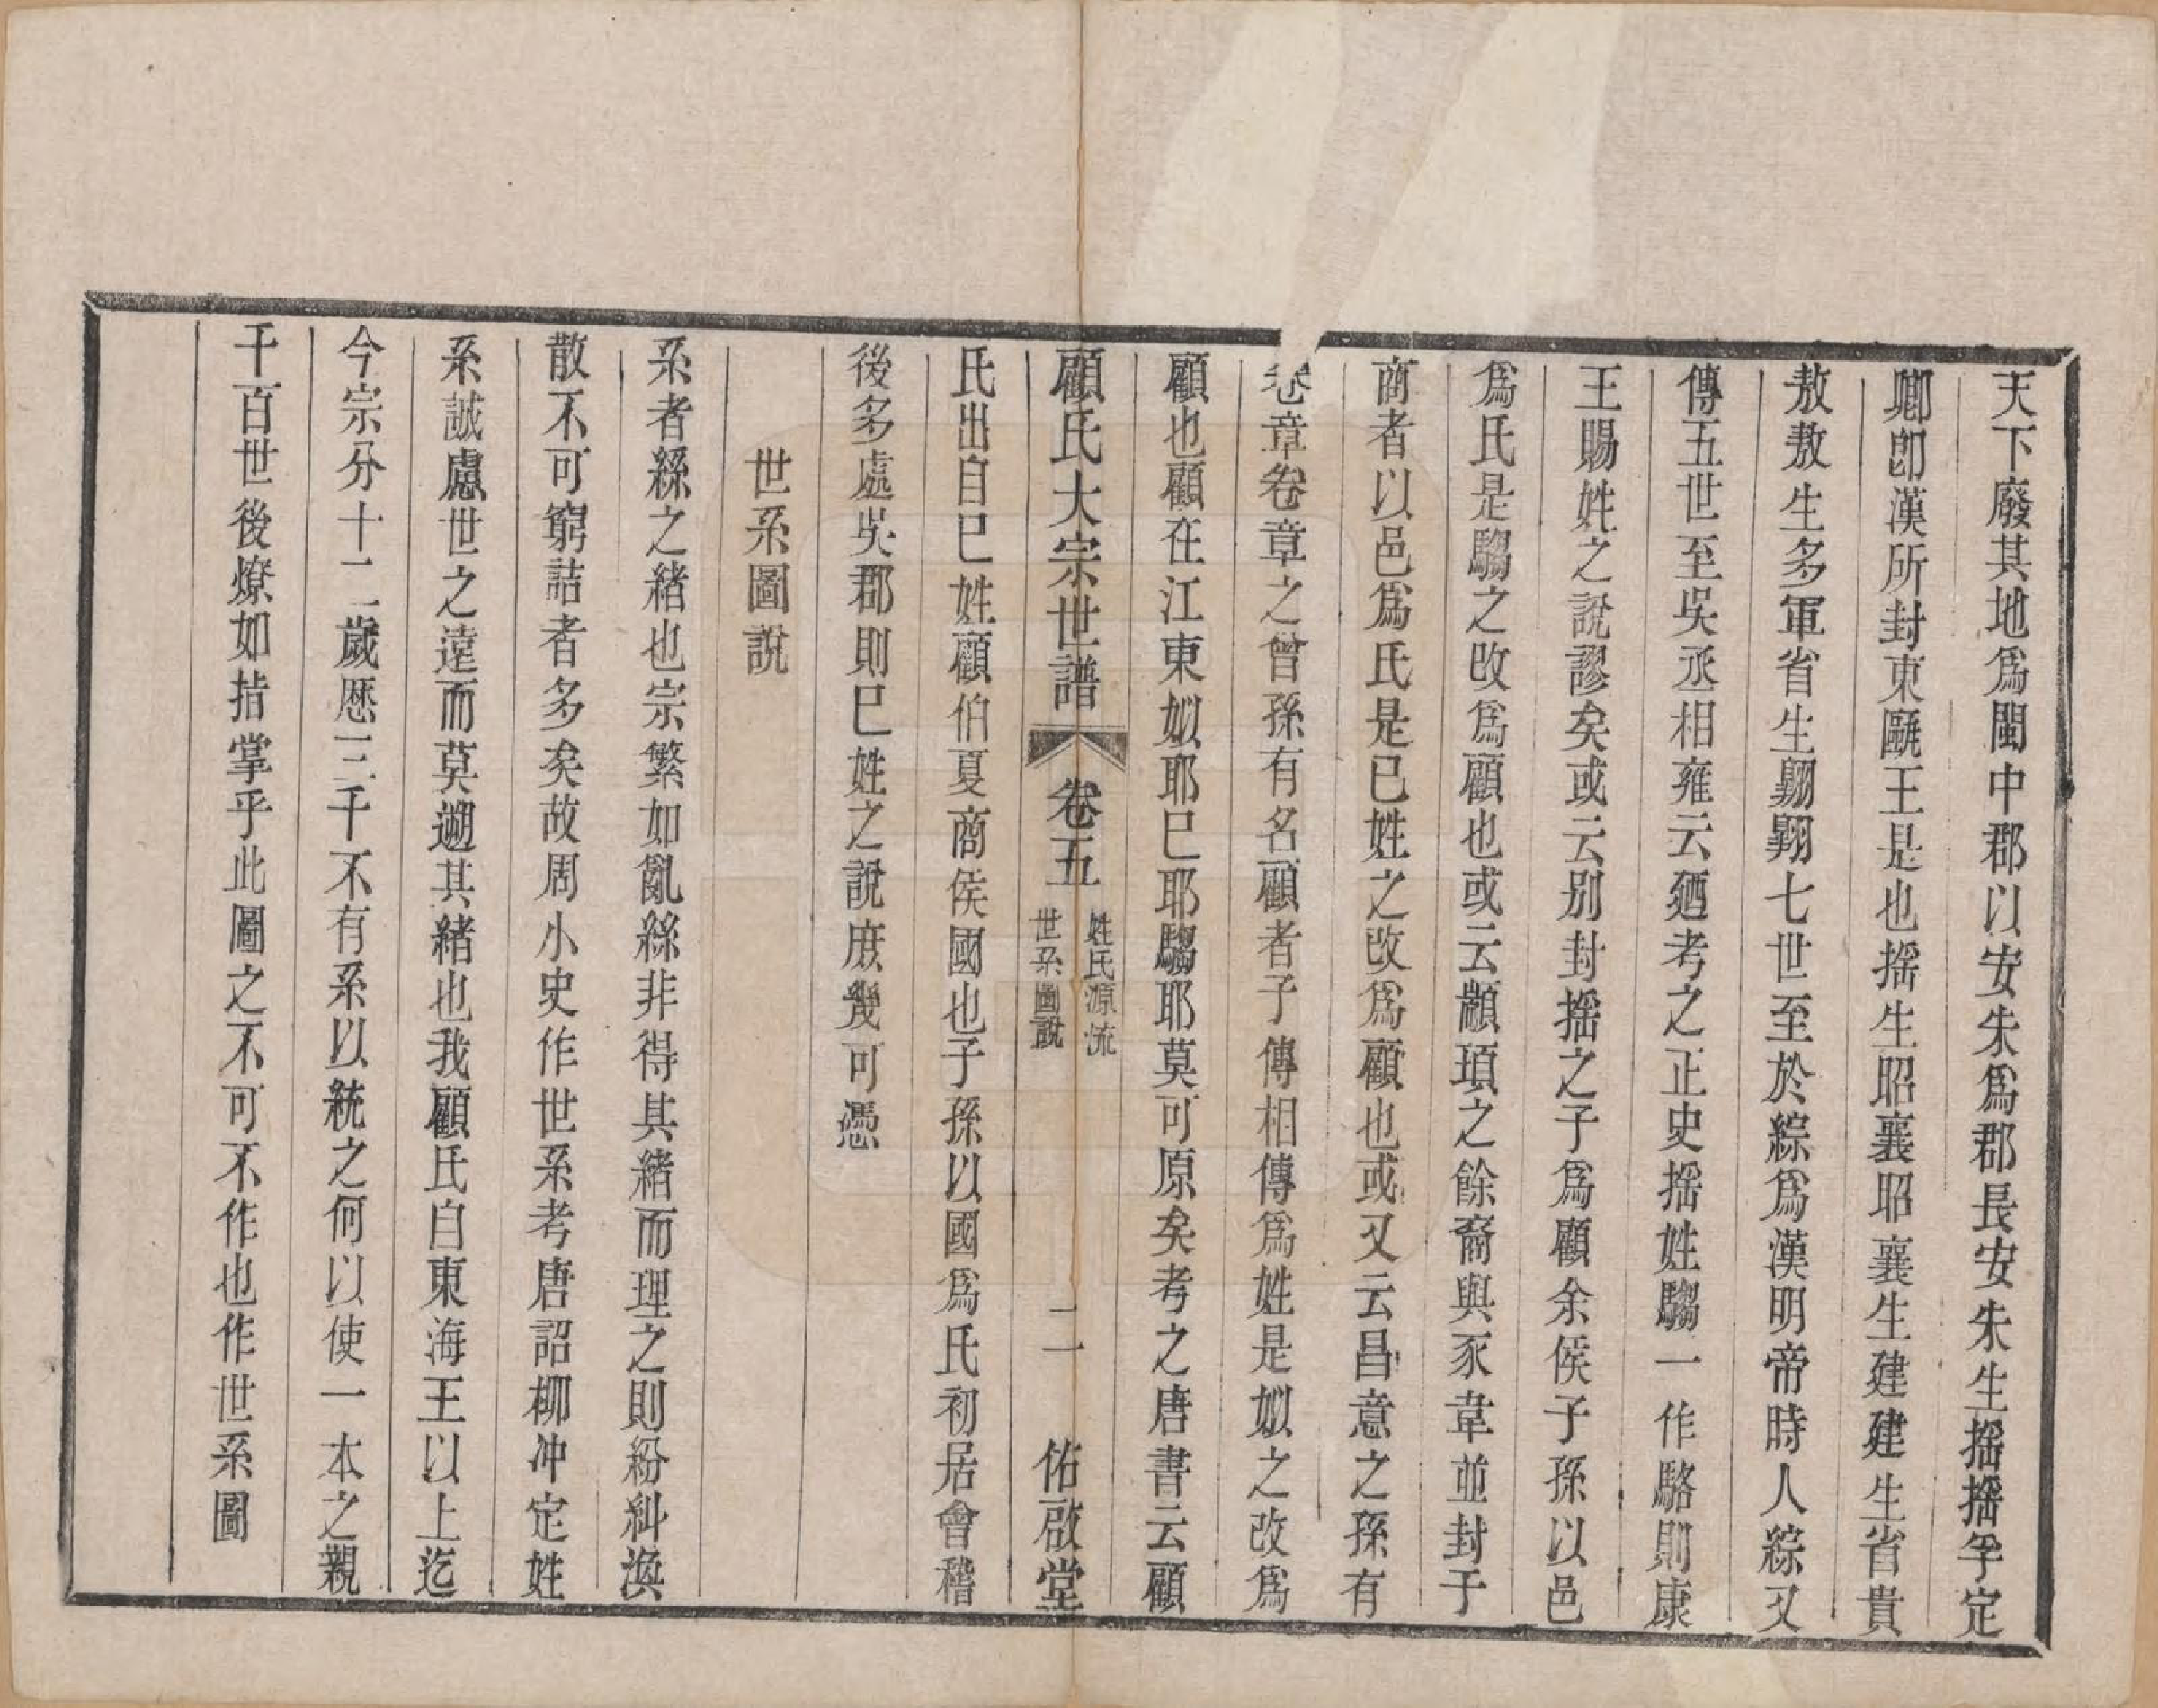 天下廢其地爲閩中郡以安朱爲郡長安朱生搖搖孚定
卿卽漢所封東甌王是也搖生昭襄昭襄生建建生省貴
敖敖生多軍省生翺翺七世至於綜爲漢明帝時人綜又
傳五世至吳丞相雍云廼考之正史搖姓騶一作駱則康
王賜姓之說謬矣或云别封搖之子爲顧余侯子孫以邑
爲氏是騶之改爲顧也或云顓頊之餘裔與豕韋並封于
商者以邑爲氏是已姓之改爲顧也或又云昌意之孫有
卷章卷章之曾孫有名顧者子傳相傳爲姓是姒之改爲
顧也顧在江東姒耶巳耶騶耶莫可原矣考之唐書云顧
顧氏大宗世譜
卷五
姓氏源流
世系圖說
二
佑啟堂
氏出自巳姓顧伯夏商侯國也子孫以國爲氏初居會稽
後多處吳郡則巳姓之說庶幾可憑
世系圖說
系者絲之緒也宗繁如亂絲非得其緒而理之則紛糾渙
散不可窮詰者多矣故周小史作世系考唐詔柳冲定姓
系誠慮世之遠而莫遡其緒也我顧氏自東海王以上迄
今宗分十二歲歷三千不有系以統之何以使一本之親
千百世後燎如指掌乎此圖之不可不作也作世系圖